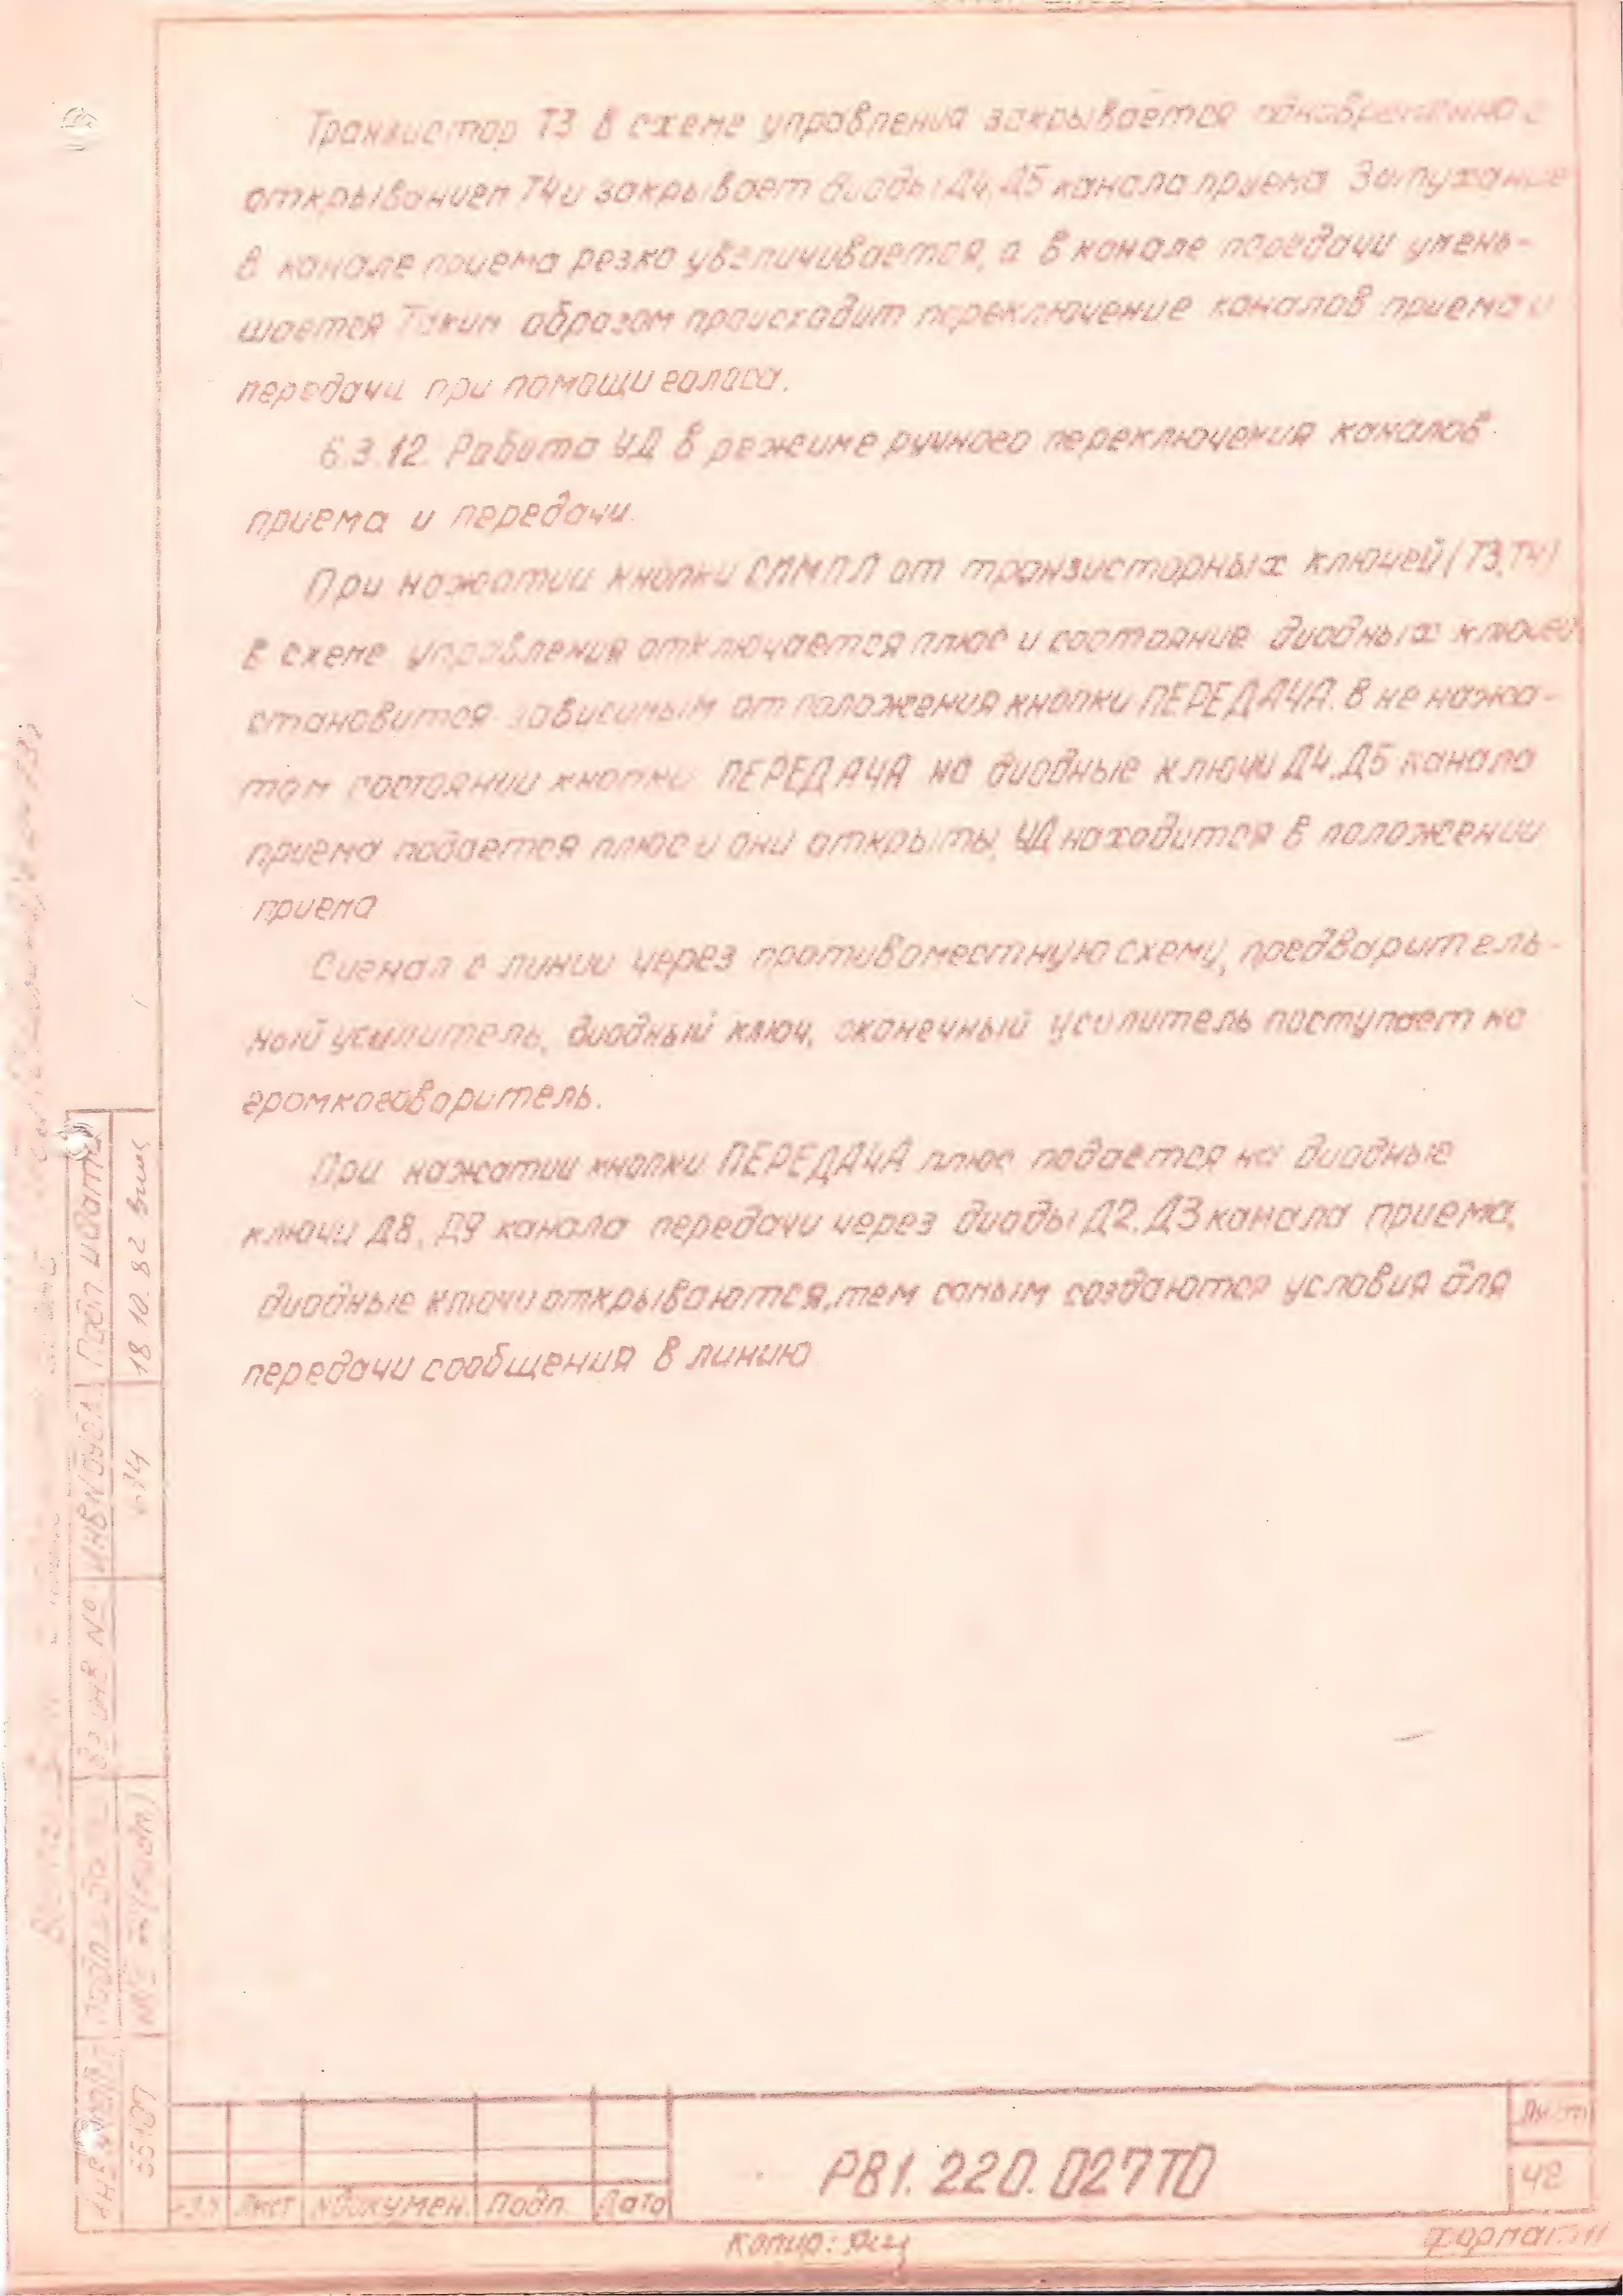 Транзистор Т3 в схеме управления закрывается одновременно с
открыванием Т4 и закрывает диоды Д4, Д5 канала приема. Затухание
в канале приема резко увеличивается, а в канале передачи умень-
шается Таким образом происходит переключение каналов приема и
передачи при помощи голоса.
6.3.12. Работа УД в режиме ручного переключения каналов
приема и передачи.
При нажатии кнопки СИМПЛ от транзисторных ключей (Т3,Т4)
в схеме управления отключается плюс и состояние диодных ключей
становится зависимым от положения кнопки ПЕРЕДАЧА. В не нажа-
том состоянии кнопки ПЕРЕДАЧА на диодные ключи Д4, Д5 канала
приема подается плюс и они открыты, УД находится в положении
приема
Сигнал с линии через противоместную схему, предваритель-
ный усилитель, диодный ключ, оконечный усилитель поступает на
громкоговоритель.
При нажатии кнопки ПЕРЕДАЧА плюс подается на диодные
ключи Д8, Д9 канала передачи через диоды Д2, Д3 канала приема,
диодные ключи открываются, тем самым создаются условия для
передачи сообщения в линию
Подп и дата
18.10.82
Инв N дубл
Вз инв №
55187
Лист
N докумен.
Подп.
Дата
РВ1.220.027ТО
Лист
42
Копир:
формат 11